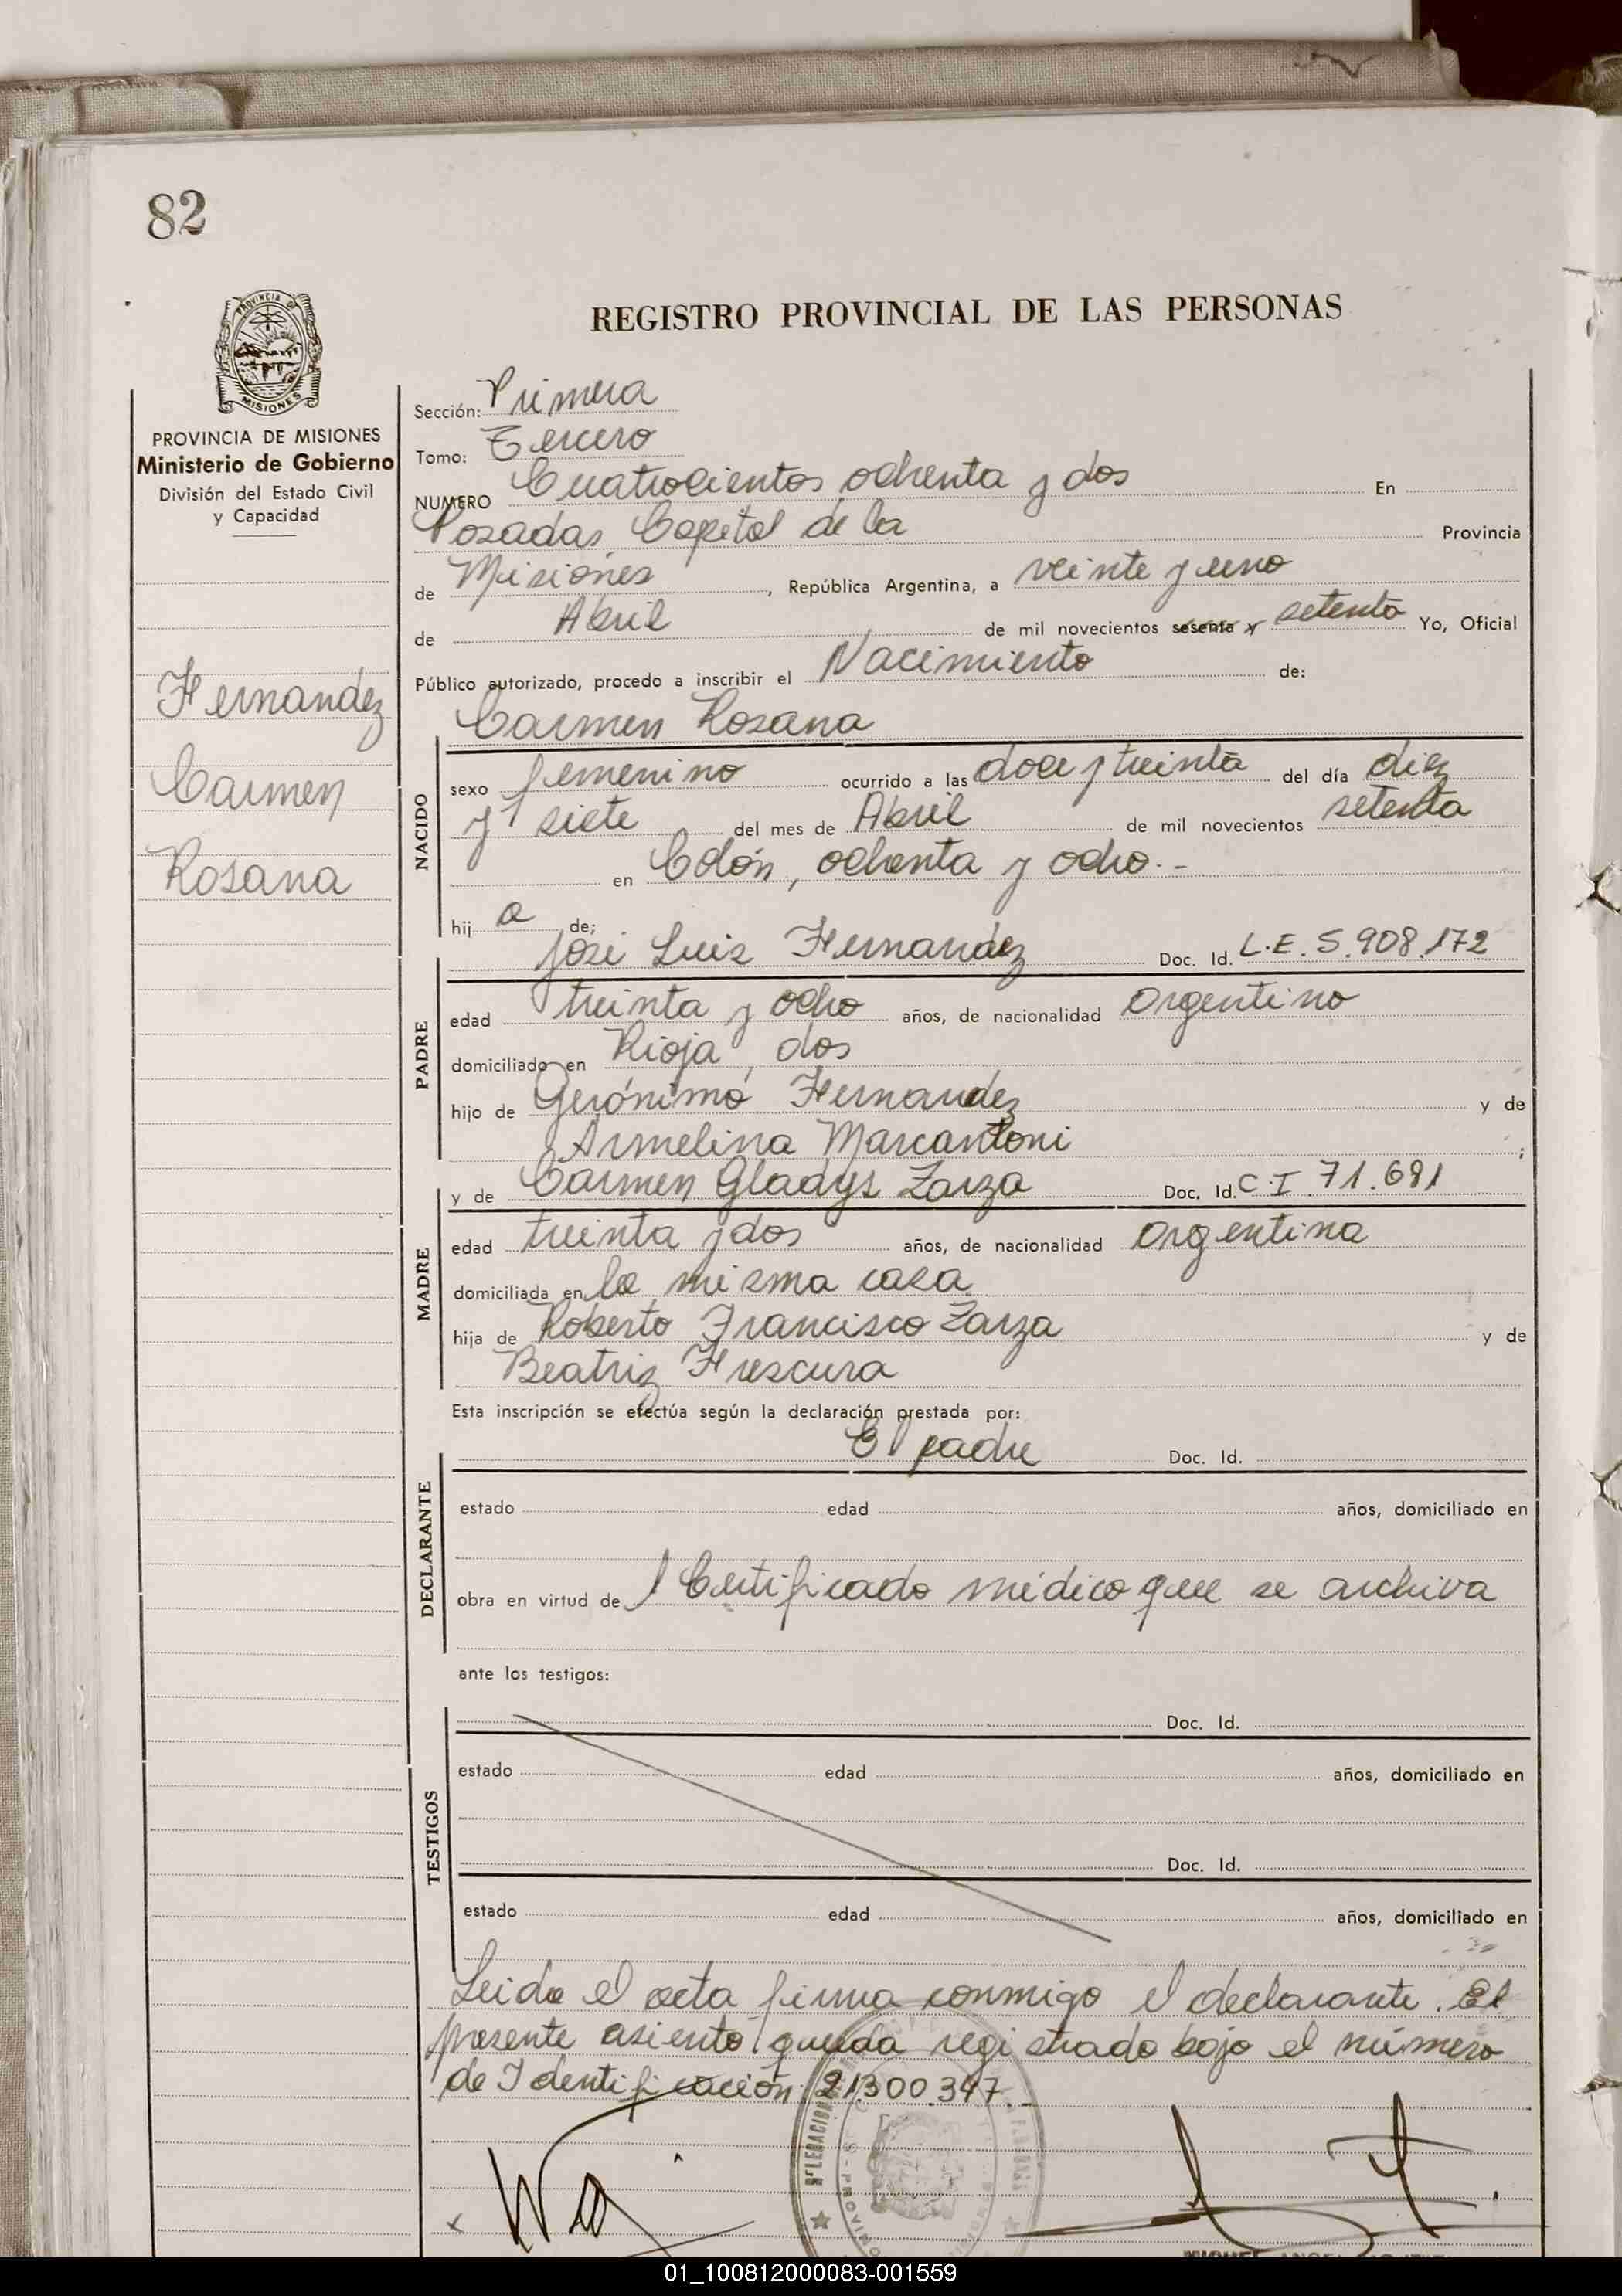 82
REGISTRO PROVINCIAL DE LAS PERSONAS
PROVINCIA DE MISIONES
PROVINCIA DE MISIONES
Ministerio de Gobierno
División del Estado Civil
y Capacidad
Fernandez
Carmen
Rosana
Sección: Primera
Tomo: Tercero
NUMERO Cuatrocientos ochenta y dos En
Posadas, Capital de la Provincia
de Misiones, República Argentina, a veinte y uno
de Abril de mil novecientos sesenta y setenta Yo, Oficial
Público autorizado, procedo a inscribir el Nacimiento de:
Carmen Rosana
NACIDO
sexo femenino ocurrido a las doce y treinta del día diez
y siete del mes de Abril de mil novecientos setenta
en Colón, ochenta y ocho.-
hij a de;
José Luis Fernandez Doc. Id. L.E. 5.908.172
PADRE
edad treinta y ocho años, de nacionalidad argentino
domiciliado en Rioja, dos
hijo de Gerónimo Fernandez y de
Armelina Marcantoni ;
y de Carmen Gladys Zarza Doc. Id. C.I 71.681
MADRE
edad treinta y dos años, de nacionalidad argentina
domiciliada en la misma casa
hija de Roberto Francisco Zarza y de
Beatriz Frescura
Esta inscripción se efectúa según la declaración prestada por:
El padre Doc. Id.
DECLARANTE
estado edad años, domiciliado en
obra en virtud de l Certificado médico que se archiva
ante los testigos:
Doc. Id.
TESTIGOS
estado edad años, domiciliado en
Doc. Id.
estado edad años, domiciliado en
Leida el acta firma conmigo el declarante. El
presente asiento queda registrado bajo el número
de Identificación: 21300.347.-
DELEGACION
MIGUEL ANGEL
01_100812000083-001559